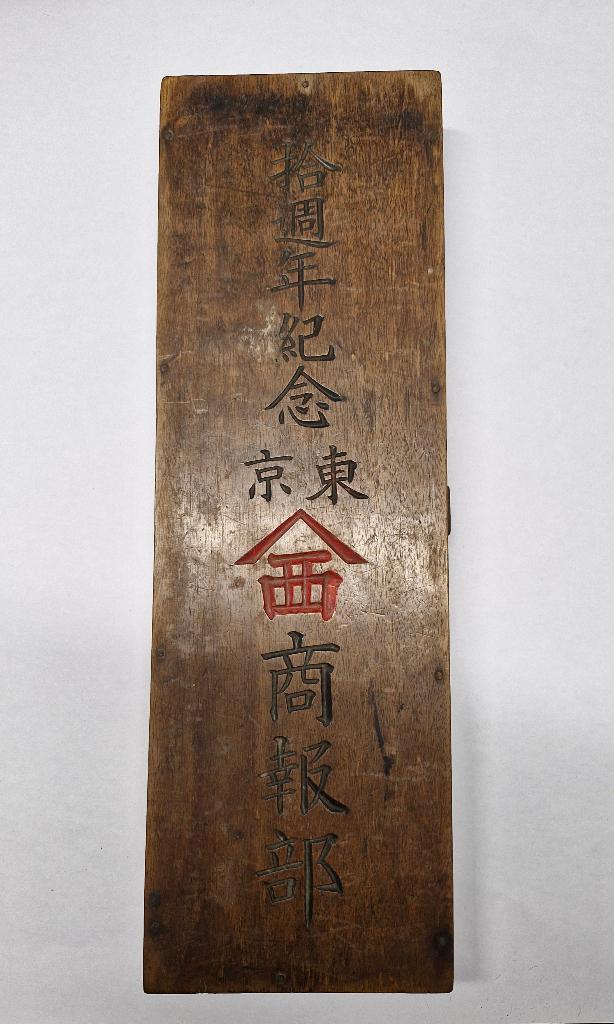 拾週年紀念
東京
西
商報部